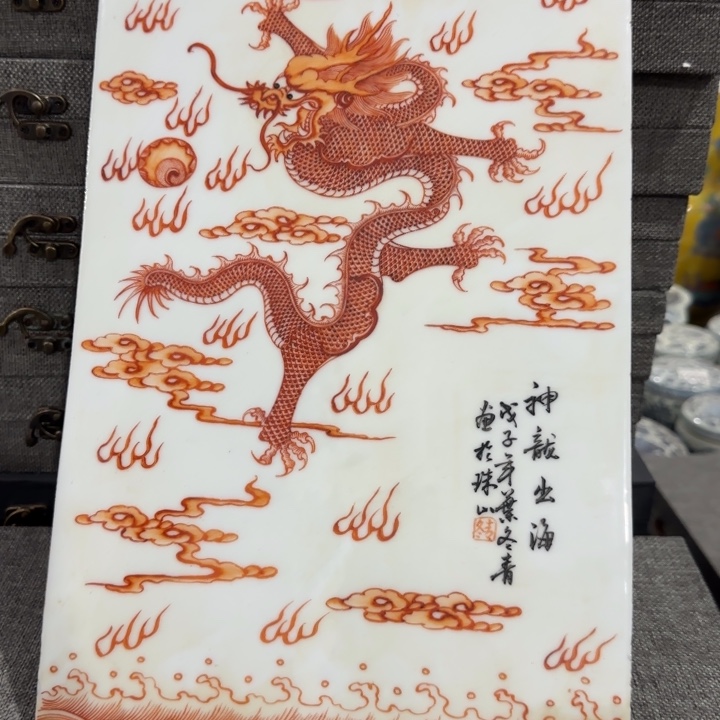 神龍出海
戊子年葉冬青
畫於珠山